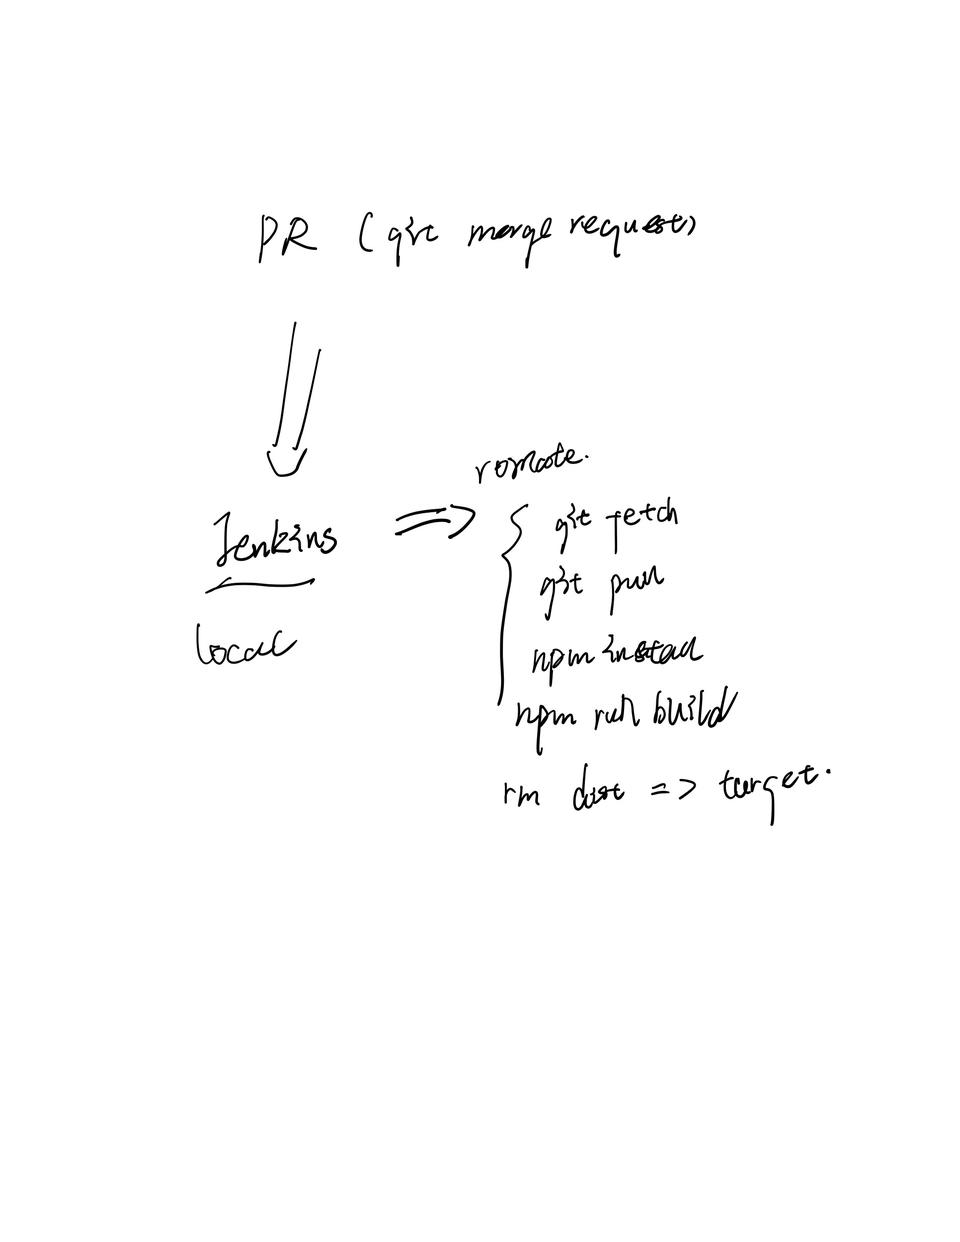 PR (git merge request)
romote.
Jenkins
git fetch
git pull
local
npm install
npm run build
rm dist => target.